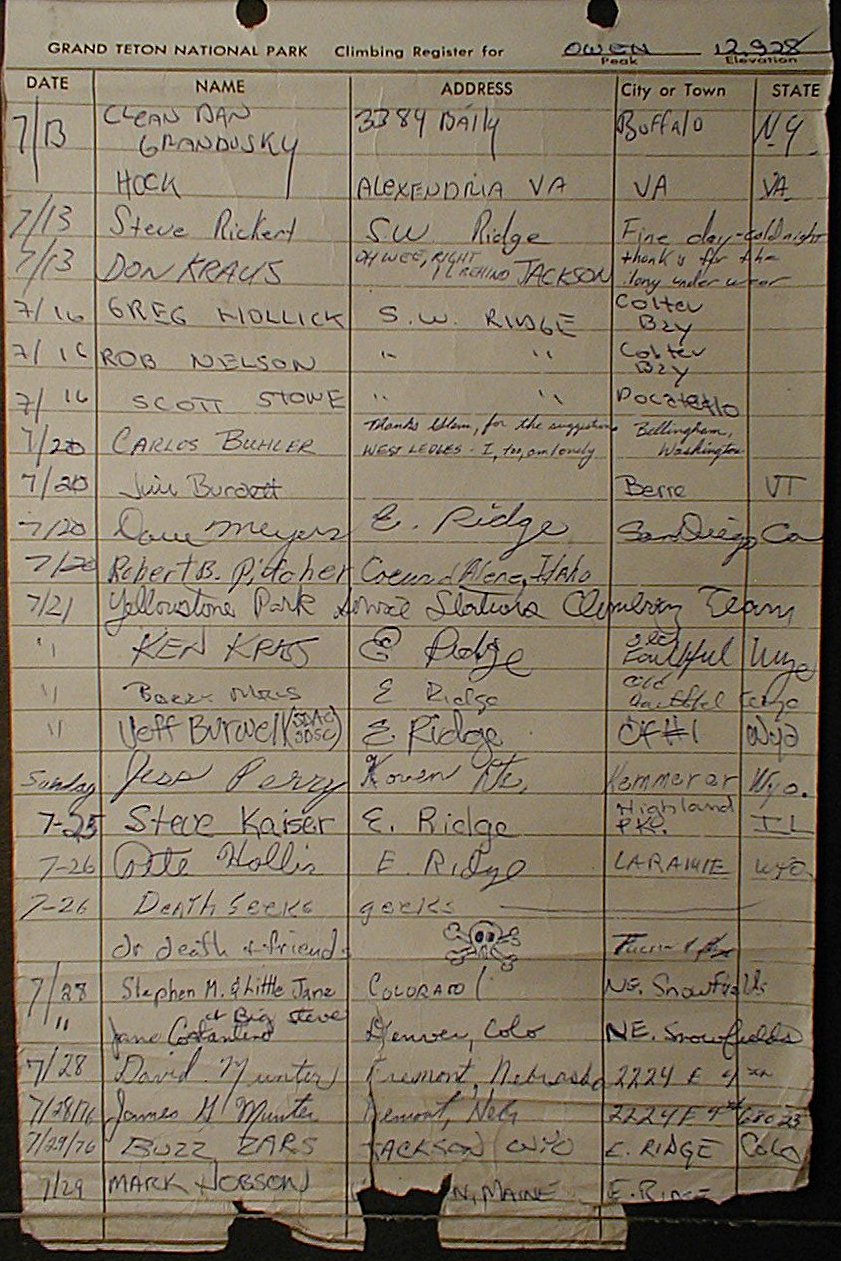 GRAND TETON NATIONAL PARK Climbing Register for OWEN 12,928
Peak Elevation
DATE NAME ADDRESS City or Town STATE
7/13 CLEAN DAN GRANDUSKY 3384 BAILY Buffalo N.Y.
HOCK ALEXENDRIA VA VA VA.
7/13 Steve Rickert S.W. Ridge Fine day-cold night
7/13 DON KRAUS OH WEE, RIGHT BEHIND JACKSON thanks for the long under wear
7/16 GREG HOLLICK S.W. RIDGE Colter Bay
7/16 ROB NELSON " " Colter Bay
7/16 SCOTT STOWE " " Pocatello
7/20 CARLOS BUHLER Thanks for the suggestion Bellingham, Washington
WEST LEDGES. I, too, am lonely
7/20 Jim Burdett Berre VT
7/20 Dave Meyers E. Ridge San Diego Ca
7/20 Robert B. Pitcher Coeur d'Alene, Idaho
7/21 Yellowstone Park Service Stations Climbing Team
" KEN KRASS E Ridge Old Faithful Wyo
" E Ridge Old Faithful Wyo
" Jeff Burwell (SDAC SDSC) E. Ridge OF#1 Wyo
Sunday Jess Perry Koven Rte, Kemmerer Wyo.
7-25 Steve Kaiser E. Ridge Highland PK. IL
7-26 Pete Hollis E. Ridge LARAMIE WYO.
7-26 Death Seeks geeks
dr death & friends
7/28 Stephen M. & Little Jane COLORADO ! NE. Snowfields
" Jane Costantino & Big Steve Denver, Colo NE. Snowfields
7/28 David Munter Fremont, Nebraska 2224 E 9th
7/28/76 James H Munter Fremont, Neb 2224 E 9th 68025
7/29/76 BUZZ ZARS JACKSON WYO E. RIDGE Colo
7/29 MARK HOBSON N, MAINE E. RIDGE